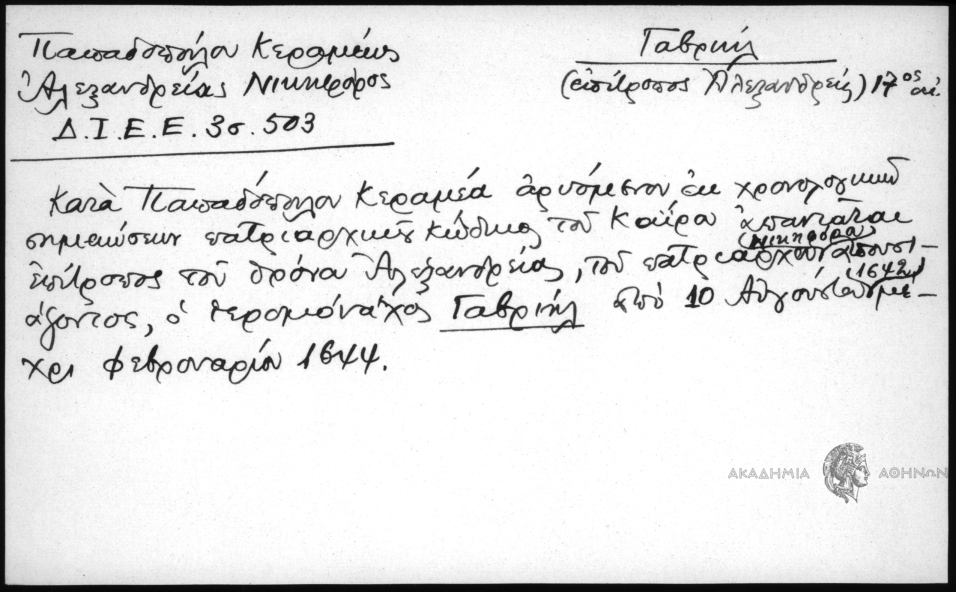 Παπαδοπούλου Κεραμέως
Ἀλεξανδρείας Νικηφόρος
Δ.Ι.Ε.Ε. 3σ. 503
Γαβριήλ
(ἐπίτροπος Ἀλεξανδρείας) 17ος αἰ.
Κατὰ Παπαδόπουλον Κεραμέα ἀρυόμενον ἐκ χρονολογικῶν
σημειώσεων πατριαρχικοῦ κώδικος τοῦ Καΐρου ἀπαντᾶται
(Νικηφόρου)
ἐπίτροπος τοῦ θρόνου Ἀλεξανδρείας, τοῦ πατριάρχου ἀπουσι-
(1642)
άζοντος, ὁ ἱερομόναχος Γαβριήλ ἀπὸ 10 Αὐγούστου μέ-
χρι Φεβρουαρίου 1644.
ΑΚΑΔΗΜΙΑ ΑΘΗΝΩΝ